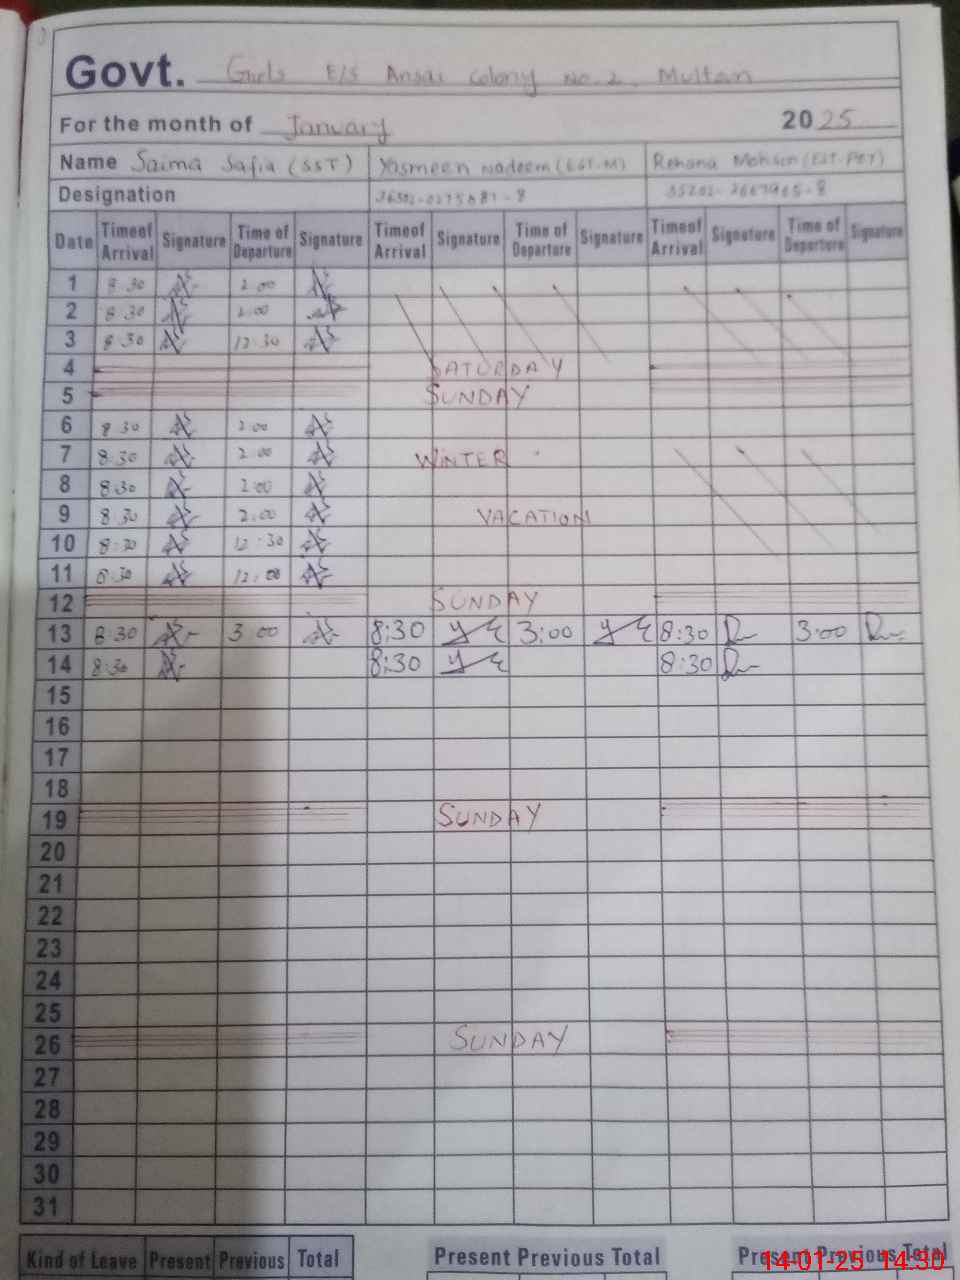 Govt. Girls E/S Ansar Colony No. 2 Multan
For the month of January 2025
Name Saima Safia (SST) Yasmeen Nadeem (EST-M) Rehana Mohsin (EST-PET)
Designation
Date Time of Arrival Signature Time of Departure Signature Time of Arrival Signature Time of Departure Signature Time of Arrival Signature Time of Departure Signature
1 8:30 2:00
2 8:30 2:00
3 8:30 12:30
4 SATURDAY
5 SUNDAY
6 8:30 2:00
7 8:30 2:00 WINTER
8 8:30 2:00
9 8:30 2:00 VACATION
10 8:30 12:30
11 8:30 12:00
12 SUNDAY
13 8:30 3:00 8:30 3:00 8:30 3:00
14 8:30 8:30 8:30
15
16
17
18
19 SUNDAY
20
21
22
23
24
25
26 SUNDAY
27
28
29
30
31
Kind of Leave Present Previous Total Present Previous Total Present Previous Total
14-01-25 14:30